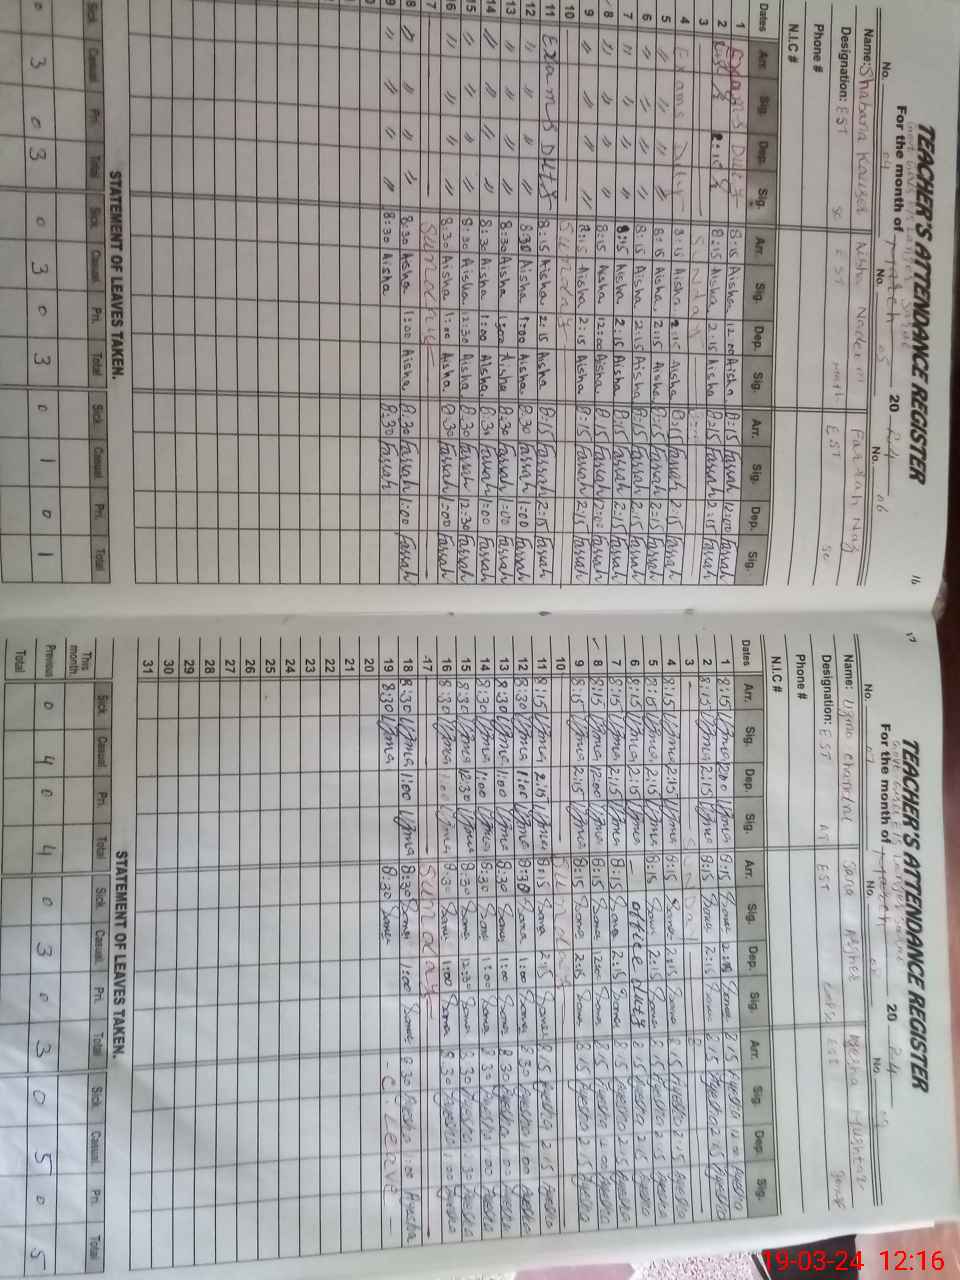 16
TEACHER'S ATTENDANCE REGISTER
For the month of March 20 24
No. 04 No. 05 No. 06
Name: Shabana Kausar Nisha Nadeem Fardah Naz
Designation: EST SC EST EST SC
Phone #
N.I.C #
Dates Arr. Sig. Dep. Sig. Arr. Sig. Dep. Sig. Arr. Sig. Dep. Sig.
1 Exams Duty 8:15 Aisha 12:00 Aisha 8:15 Farrah 12:00 Farrah
2 8:15 Aisha 2:15 Aisha 8:15 Farrah 2:15 Farrah
3 Sunday
4 Exams Duty 8:15 Aisha 2:15 Aisha 8:15 Farrah 2:15 Farrah
5 〃 〃 〃 〃 8:15 Aisha 2:15 Aisha 8:15 Farrah 2:15 Farrah
6 〃 〃 〃 〃 8:15 Aisha 2:15 Aisha 8:15 Farrah 2:15 Farrah
7 〃 〃 〃 〃 8:15 Aisha 2:15 Aisha 8:15 Farrah 2:15 Farrah
8 〃 〃 〃 〃 8:15 Aisha 12:00 Aisha 8:15 Farrah 12:00 Farrah
9 〃 〃 〃 〃 8:15 Aisha 2:15 Aisha 8:15 Farrah 2:15 Farrah
10 Sunday
11 Exams Duty 8:15 Aisha 2:15 Aisha 8:15 Farrah 2:15 Farrah
12 〃 〃 〃 〃 8:30 Aisha 1:00 Aisha 8:30 Farrah 1:00 Farrah
13 〃 〃 〃 〃 8:30 Aisha 1:00 Aisha 8:30 Farrah 1:00 Farrah
14 〃 〃 〃 〃 8:30 Aisha 1:00 Aisha 8:30 Farrah 1:00 Farrah
15 〃 〃 〃 〃 8:30 Aisha 12:30 Aisha 8:30 Farrah 12:30 Farrah
16 〃 〃 〃 〃 8:30 Aisha 1:00 Aisha 8:30 Farrah 1:00 Farrah
17 Sunday
18 〃 〃 〃 〃 8:30 Aisha 1:00 Aisha 8:30 Farrah 1:00 Farrah
19 〃 〃 〃 〃 8:30 Aisha 8:30 Farrah
STATEMENT OF LEAVES TAKEN.
Sick Casual Pri. Total Sick Casual Pri. Total Sick Casual Pri. Total
0 3 0 3 0 3 0 3 0 1 0 1
17
TEACHER'S ATTENDANCE REGISTER
For the month of March 20 24
No. 07 No. 08 No. 09
Name: Uzma Sana Ayesha Mushtaq
Designation: EST EST EST
Phone #
N.I.C #
Dates Arr. Sig. Dep. Sig. Arr. Sig. Dep. Sig. Arr. Sig. Dep. Sig.
1 8:15 Uzma 12:00 8:15 Sana 2:15 Sana 8:15 Ayesha 12:00 Ayesha
2 8:15 Uzma 2:15 Uzma 8:15 Sana 2:15 Sana 8:15 Ayesha 2:15 Ayesha
3 Sunday
4 8:15 Uzma 2:15 Uzma 8:15 Sana 2:15 Sana 8:15 Ayesha 2:15 Ayesha
5 8:15 Uzma 2:15 Uzma 8:15 Sana 2:15 Sana 8:15 Ayesha 2:15 Ayesha
6 8:15 Uzma 2:15 Uzma office duty 8:15 Ayesha 2:15 Ayesha
7 8:15 Uzma 2:15 Uzma 8:15 Sana 2:15 Sana 8:15 Ayesha 2:15 Ayesha
8 8:15 Uzma 12:00 Uzma 8:15 Sana 12:00 Sana 8:15 Ayesha 12:00 Ayesha
9 8:15 Uzma 2:15 Uzma 8:15 Sana 2:15 Sana 8:15 Ayesha 2:15 Ayesha
10 Sunday
11 8:15 Uzma 2:15 Uzma 8:15 Sana 2:15 Sana 8:15 Ayesha 2:15 Ayesha
12 8:30 Uzma 1:00 Uzma 8:30 Sana 1:00 Sana 8:30 Ayesha 1:00 Ayesha
13 8:30 Uzma 1:00 Uzma 8:30 Sana 1:00 Sana 8:30 Ayesha 1:00 Ayesha
14 8:30 Uzma 1:00 Uzma 8:30 Sana 1:00 Sana 8:30 Ayesha 1:00 Ayesha
15 8:30 Uzma 12:30 Uzma 8:30 Sana 12:30 Sana 8:30 Ayesha 12:30 Ayesha
16 8:30 Uzma 1:00 Uzma 8:30 Sana 1:00 Sana 8:30 Ayesha 1:00 Ayesha
17 Sunday
18 8:30 Uzma 1:00 Uzma 8:30 Sana 1:00 Sana 8:30 Ayesha 1:00 Ayesha
19 8:30 Uzma 8:30 Sana - C. Leave -
20
21
22
23
24
25
26
27
28
29
30
31
STATEMENT OF LEAVES TAKEN.
Sick Casual Pri. Total Sick Casual Pri. Total Sick Casual Pri. Total
This month
Previous 0 4 0 4 0 3 0 3 0 5 0 5
Total
19-03-24 12:16